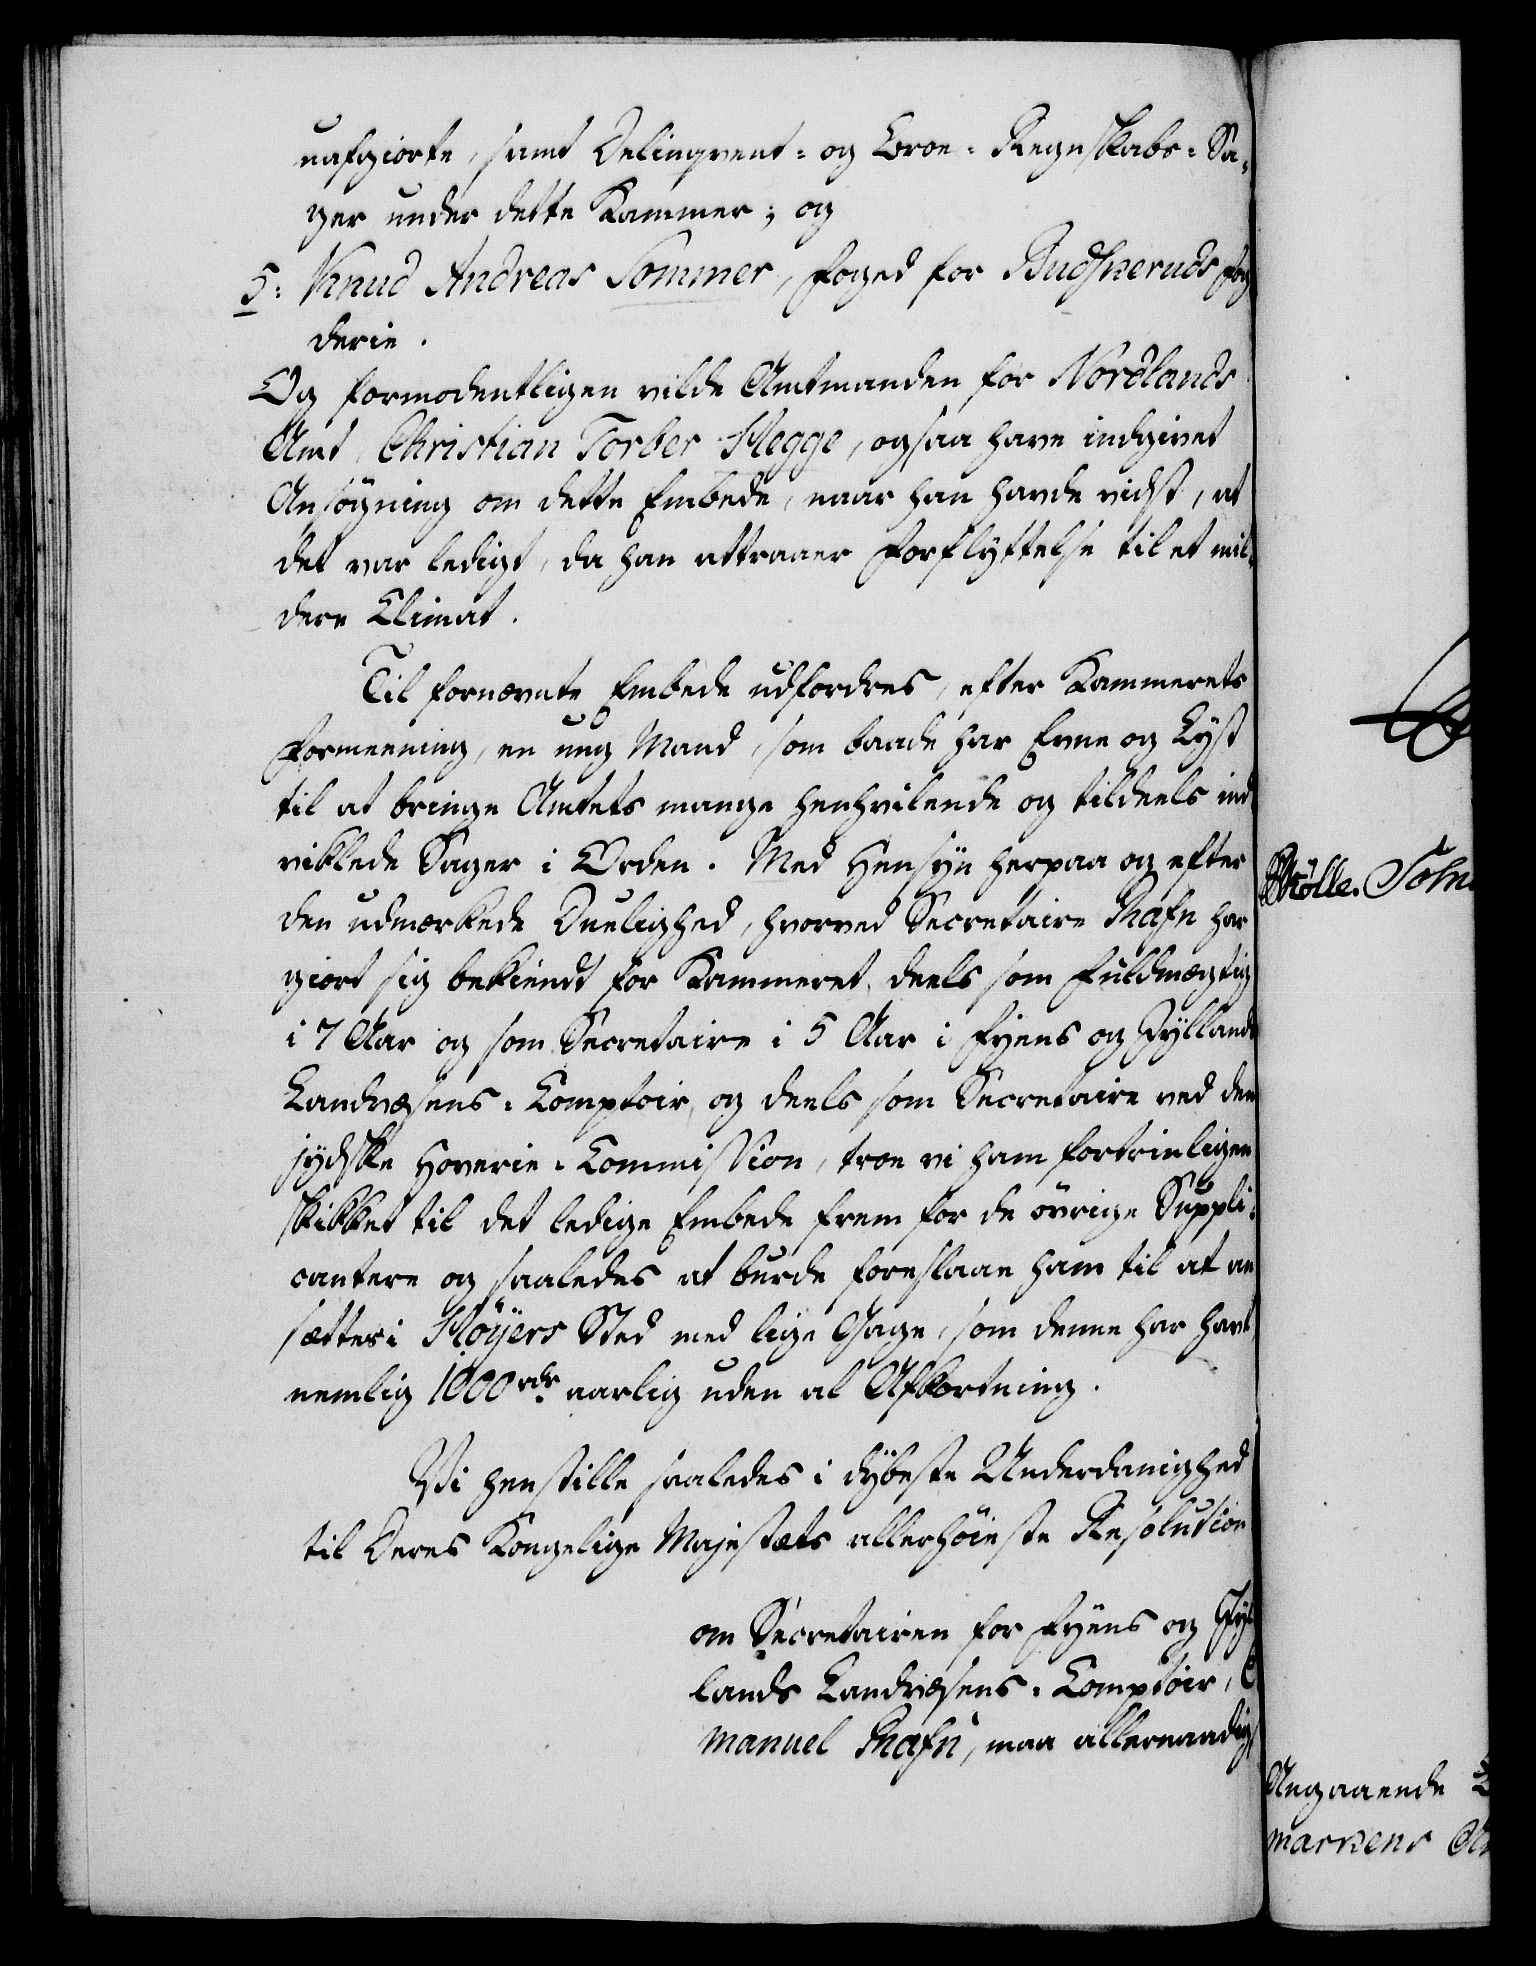 uafgiorte, samt Delinqvent- og Broe-Regnskabs-Sa-
ger under dette Kammer; og
5: Knud Andreas Sommer, Foged for Budskeruds Fog
derie.
Og formodentligen vilde Amtmanden for Nordlands
Amt, Christian Torber Hegge, ogsaa have indgivet
Ansøgning om dette Embede, naar han havde vidst, at
det var ledigt, da han attraaer Forflyttelse til et mil-
dere Climat.
Til fornævnte Embede udfordres, efter Kammerets
Formeening, en ung Mand, som baade har Evne og Lyst
til at bringe Amtets mange henhvilende og tildeels ind
viklede Sager i Orden. Med Hensyn herpaa og efter
den udmærkede Duelighed, hvorved Secretaire Rafn har
giort sig bekiendt for Kammeret, deels som Fuldmægtig
i 7 Aar og som Secretaire i 5 Aar i Fyens og Jyllands
Landvæsens-Comptoir, og deels som Secretaire ved den
jydske Hoverie-Commission, troe vi ham fortrinligen
skikket til det ledige Embede frem for de øvrige Suppli-
cantere og saaledes at burde foreslaae ham til at an
sættes i Höyers Sted med lige Gage, som denne har havt
nemlig 1000 rdr aarlig uden al Afkortning.
Vi henstille saaledes i dybeste Underdanighed
til Deres Kongelige Majestæts allerhøieste Resolution
om Secretairen for Fyens og Jyl
lands Landvæsens-Comptoir, E
manuel Rafn, maa allernaadigs
Mølle.
Angaaende
markens